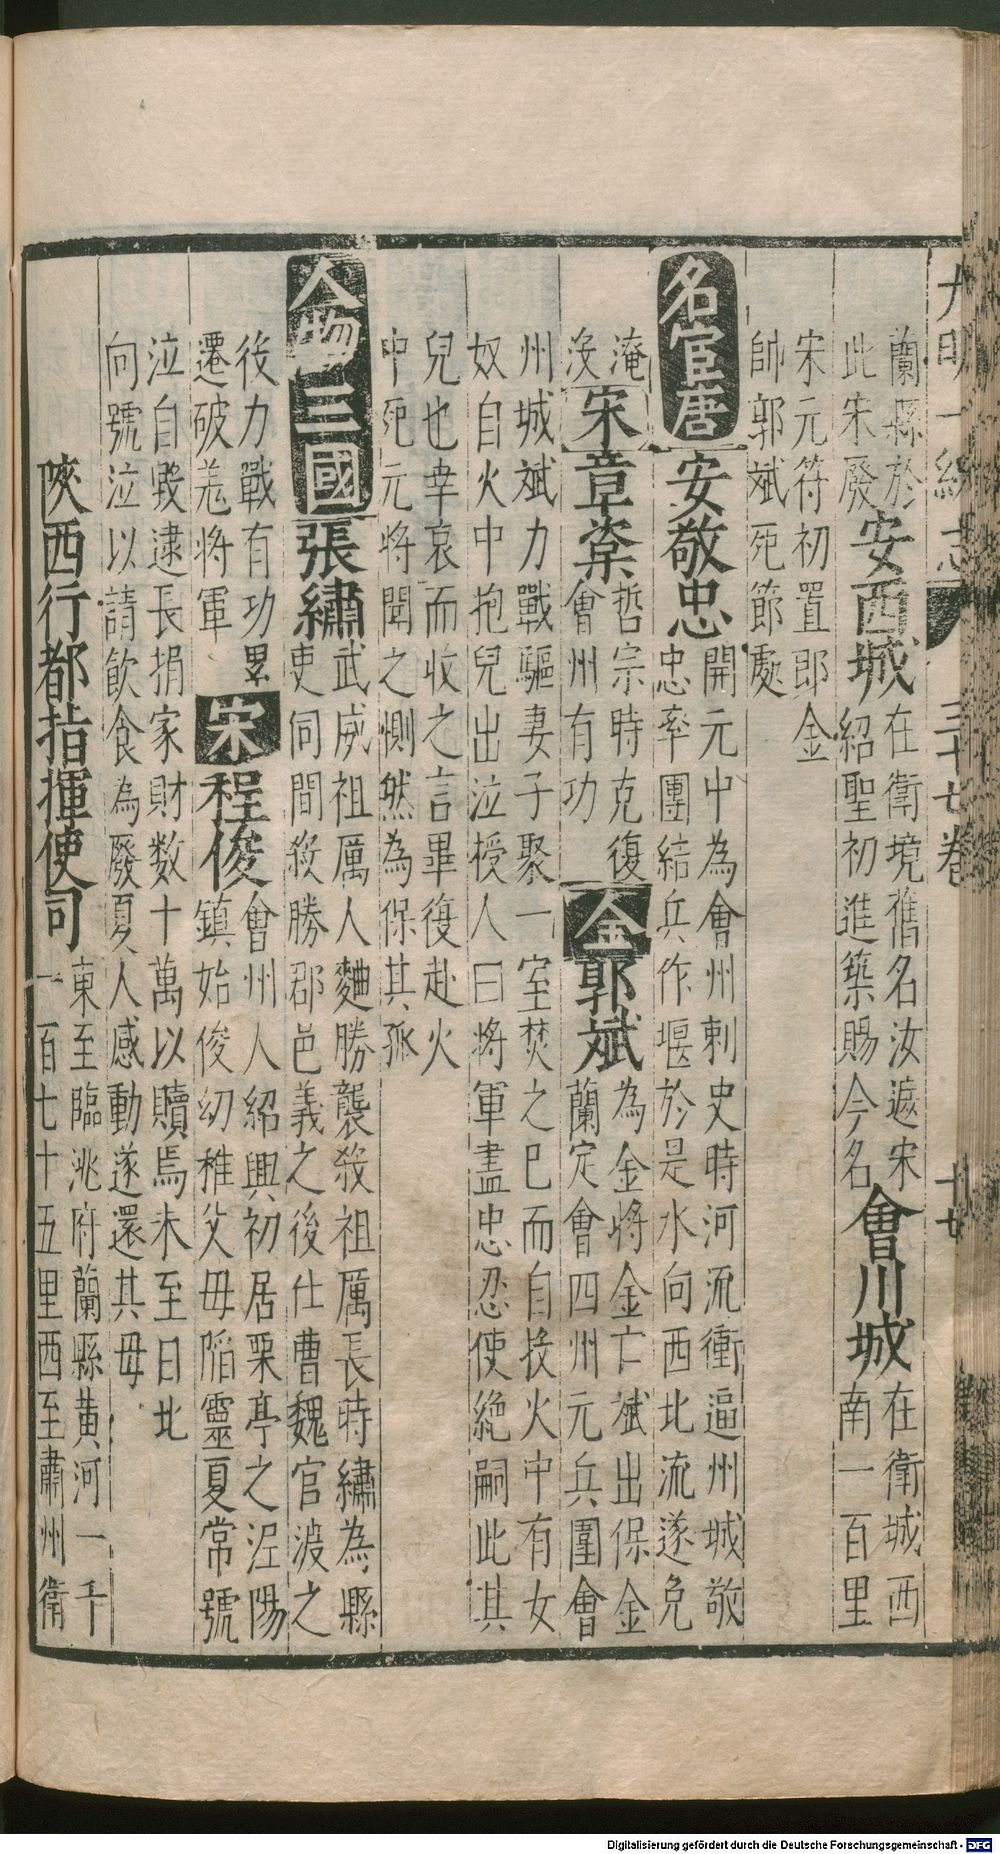 大明一統志 三十七卷 十七
蘭縣於
此宋廢
安西城
在衛境舊名汝遮宋
紹聖初進築賜今名
會川城
在衛城西
南一百里
宋元符初置郎金
帥郭斌死節處
名宦唐
安敬忠
開元中為會州刺史時河流衝逼州城敬
忠率團結兵作堰於是水向西北流遂免
淹
沒
宋
章楶
哲宗時克復
會州有功
金
郭斌
為金將金亡斌出保金
蘭定會四州元兵圍會
州城斌力戰驅妻子聚一室焚之已而自投火中有女
奴自火中抱兒出泣授人曰將軍盡忠忍使絶嗣此其
兒也幸哀而收之言畢復赴火
中死元將聞之惻然為保其孤
人物三國
張繡
武威祖厲人麴勝襲殺祖厲長時繡為縣
吏伺間殺勝郡邑義之後仕曹魏官渡之
後力戰有功累
遷破羌將軍
宋
程俊
會州人紹興初居栗亭之泥陽
鎮始俊幼稚父母陷靈夏常號
泣自毀逮長捐家財数十萬以贖焉未至日北
向號泣以請飲食為廢夏人感動遂還其母
陜西行都指揮使司
東至臨洮府蘭縣黄河一千
一百七十五里西至肅州衛
Digitalisierung gefördert durch die Deutsche Forschungsgemeinschaft - DFG